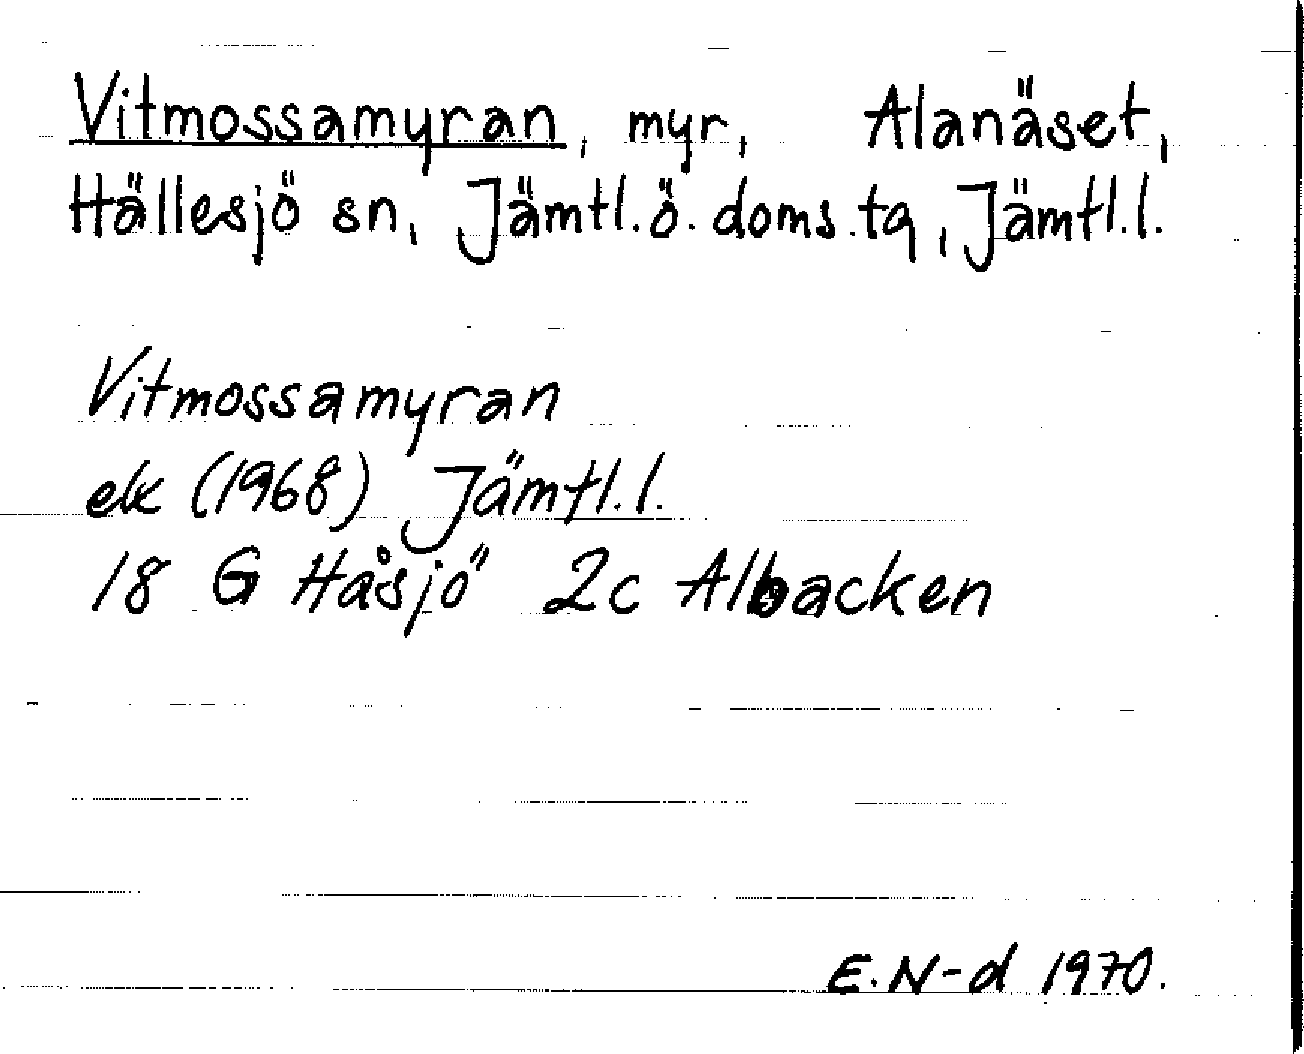 Vitmossamyran, myr, Alanäset,
Hällesjö sn, Jämtl.ö.doms.tq, Jämtl.l.
Vitmossamyran
ek (1968) Jämtl.l.
18 G Håsjö 2c Albacken
E.N-d 1970.